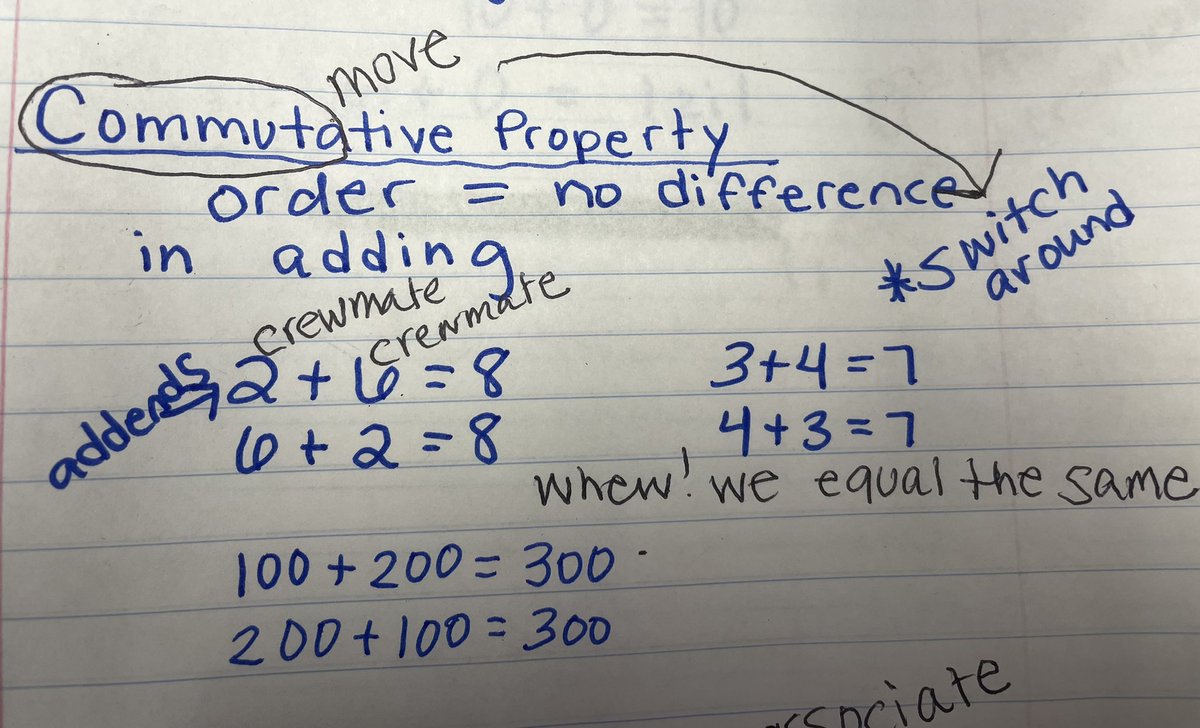 move
Commutative Property
order = no difference
in adding
*switch
around
crewmate
crewmate
addends
2 + 6 = 8
6 + 2 = 8
3+4=7
4+3=7
whew! we equal the same
100 + 200 = 300
200 + 100 = 300